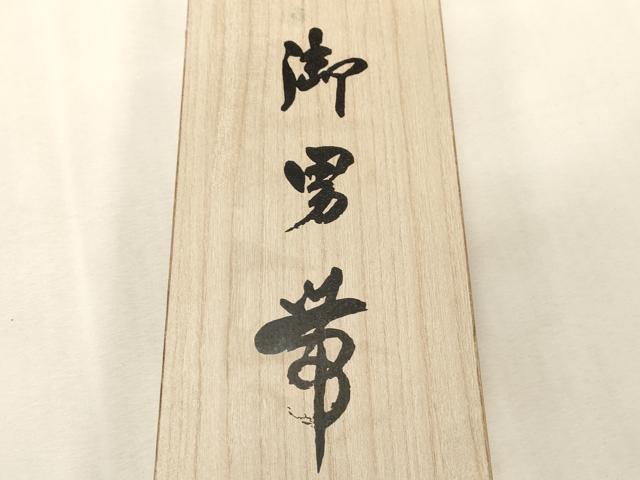 御男帯